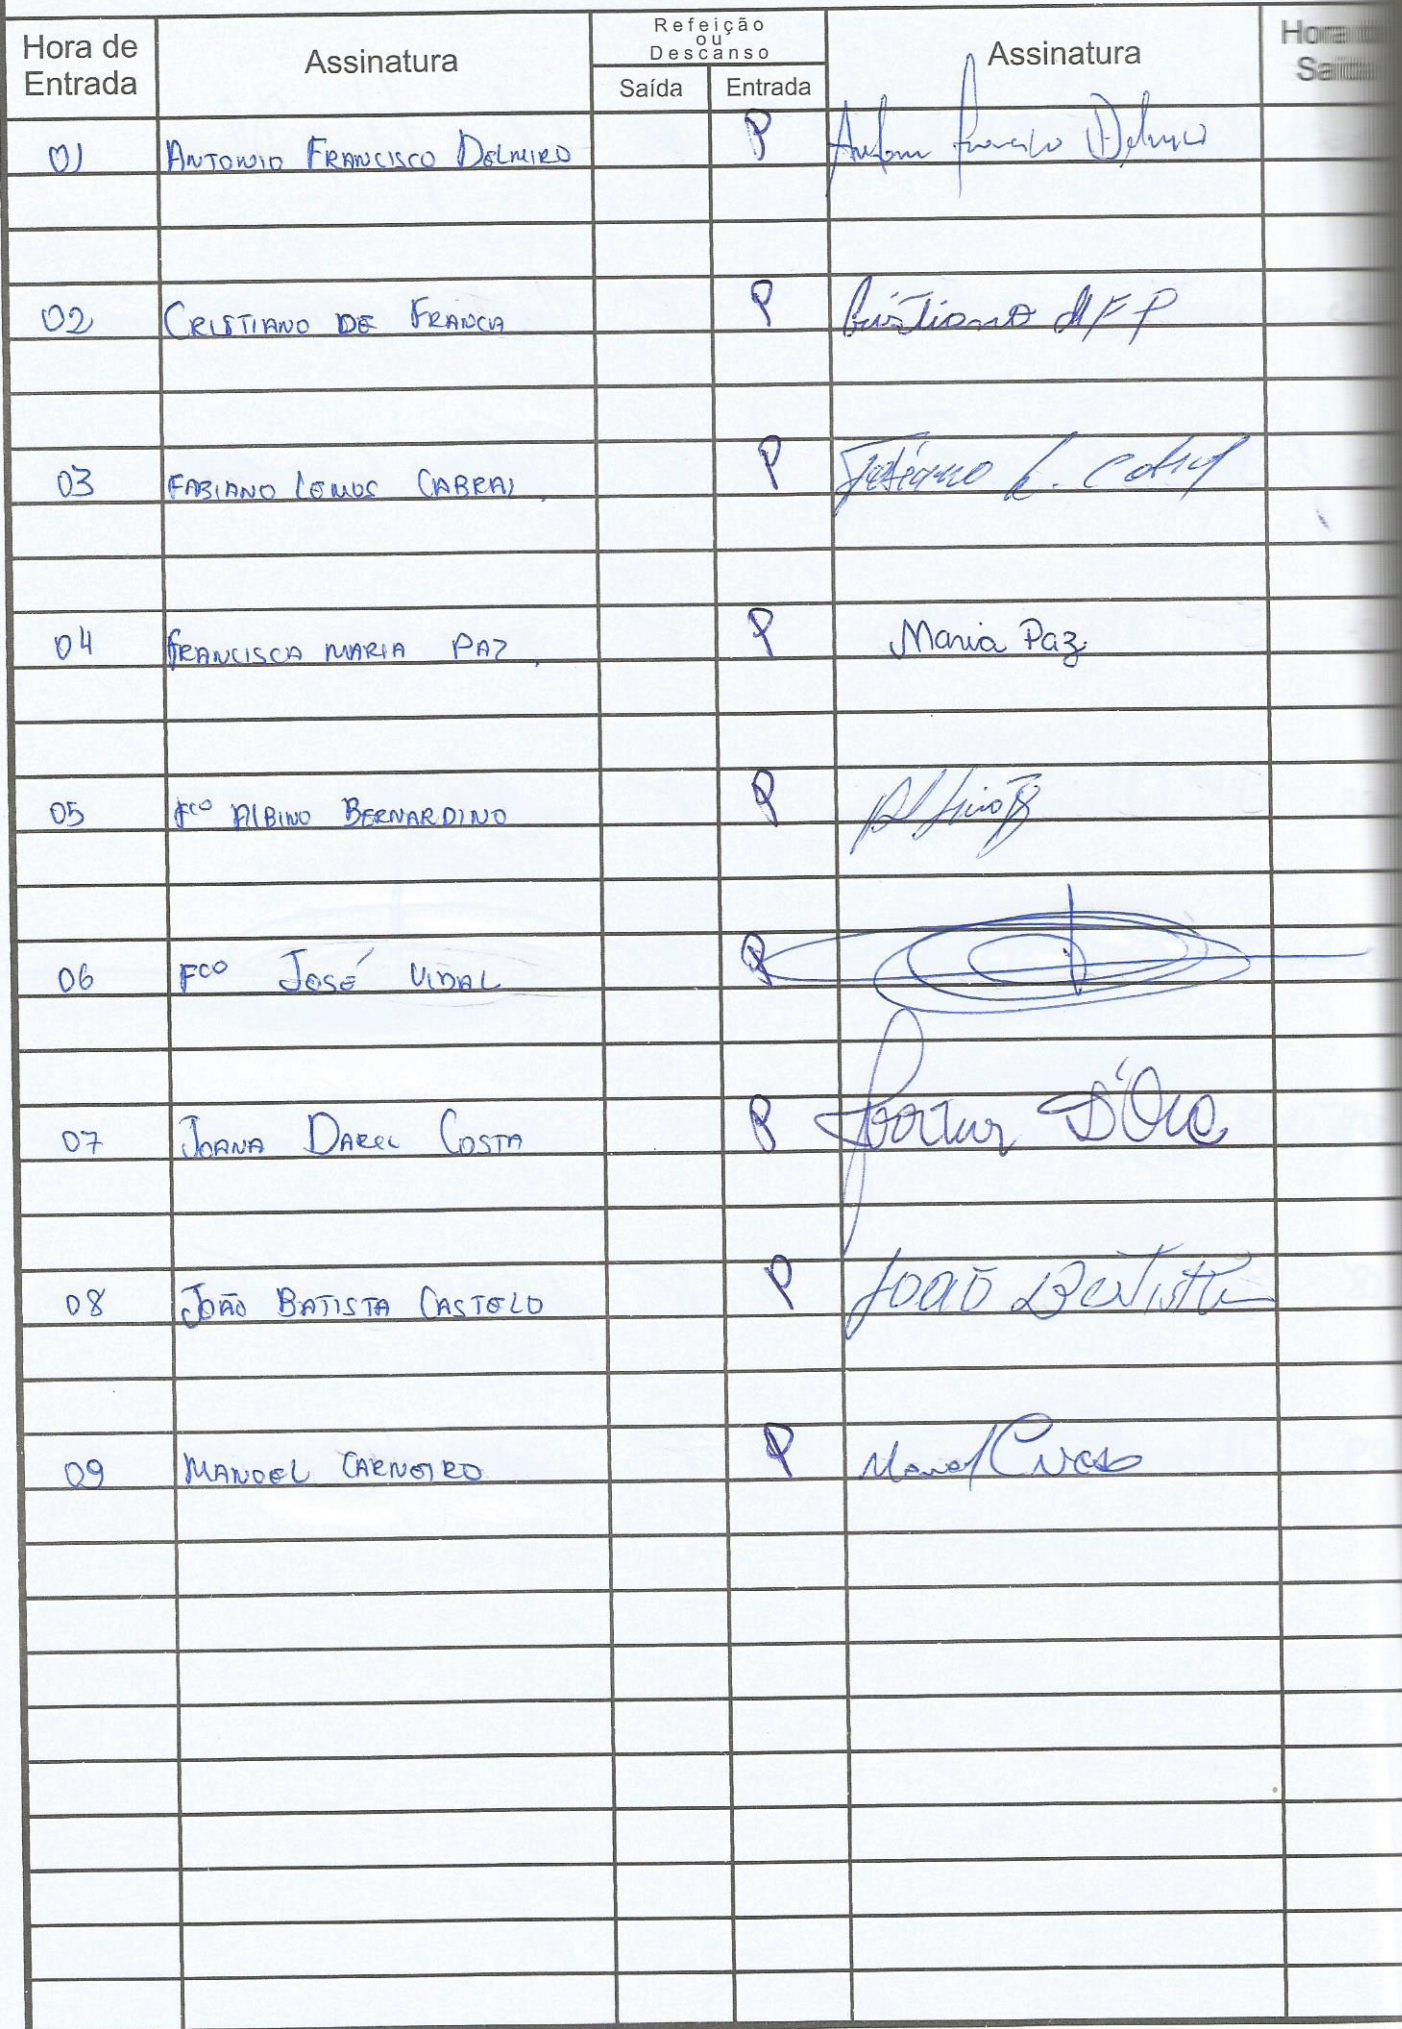 Hora de Entrada
Assinatura
Refeição
ou
Descanso
Saída
Entrada
Assinatura
Hora
01 ANTONIO FRANCISCO DELMIRO P Antonio Francisco Delmiro
02 CRISTIANO DE FRANCA P Cristiano MFP
03 FABIANO LEMOS CABRAL P Fabiano L. Cabral
04 FRANCISCA MARIA PAZ P Maria Paz
05 Fco ALBINO BERNARDINO P Albino B
06 Fco JOSÉ VIDAL P
07 JOANA DARCC COSTA P
08 JOÃO BATISTA CASTELO P João Batista
09 MANOEL CARNEIRO P Manoel